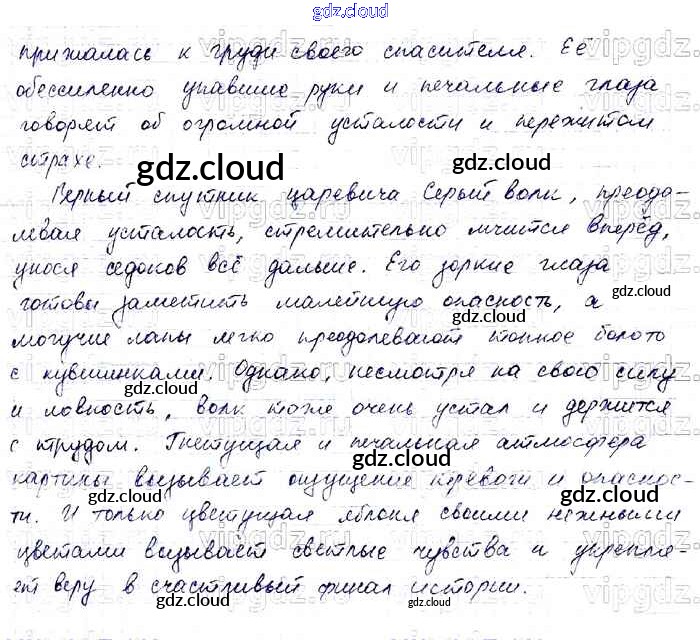 gdz.cloud
прижалась к груди своего спасителя. Её
обессиленно упавшие руки и печальные глаза
говорят об огромной усталости и пережитом
страхе.
gdz.cloud
gdz.cloud
Верный спутник царевича Серый волк, преодо-
левая усталость, стремительно мчится вперёд,
унося седоков всё дальше. Его зоркие глаза
gdz.cloud
готовы заметить малейшую опасность, а
gdz.cloud
могучие лапы легко преодолевают топкое болото
с кувшинками. Однако, несмотря на свою силу
gdz.cloud
и ловкость, волк тоже очень устал и держится
gdz.cloud
с трудом. Гнетущая и печальная атмосфера
gdz.cloud
картины вызывает ощущение тревоги и опаснос-
gdz.cloud
gdz.cloud
ти. И только цветущая яблоня своими нежными
gdz.cloud
цветами вызывает светлые чувства и укрепля-
ет веру в счастливый финал истории.
gdz.cloud
gdz.cloud